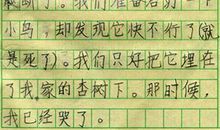 断了。我们准备治疗一下
小鸟，却发现它快不行了（就
是死了）。我们只好把它埋在
了我家的杏树下。那时候，
我已经哭了。